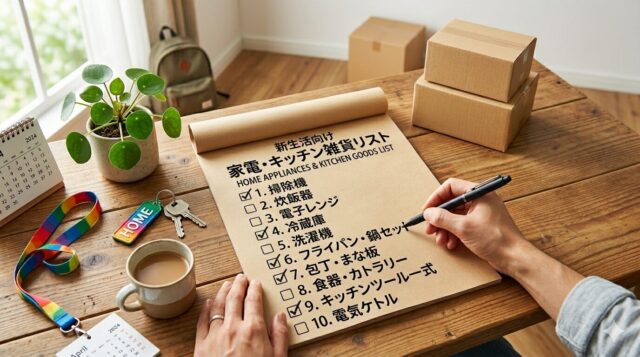 2024
新生活向け
家電・キッチン雑貨リスト
HOME APPLIANCES & KITCHEN GOODS LIST
1. 掃除機
2. 炊飯器
3. 電子レンジ
4. 冷蔵庫
5. 洗濯機
6. フライパン・鍋セット
7. 包丁・まな板
8. 食器・カトラリー
9. キッチンツール一式
10. 電気ケトル
HOME
April
2024